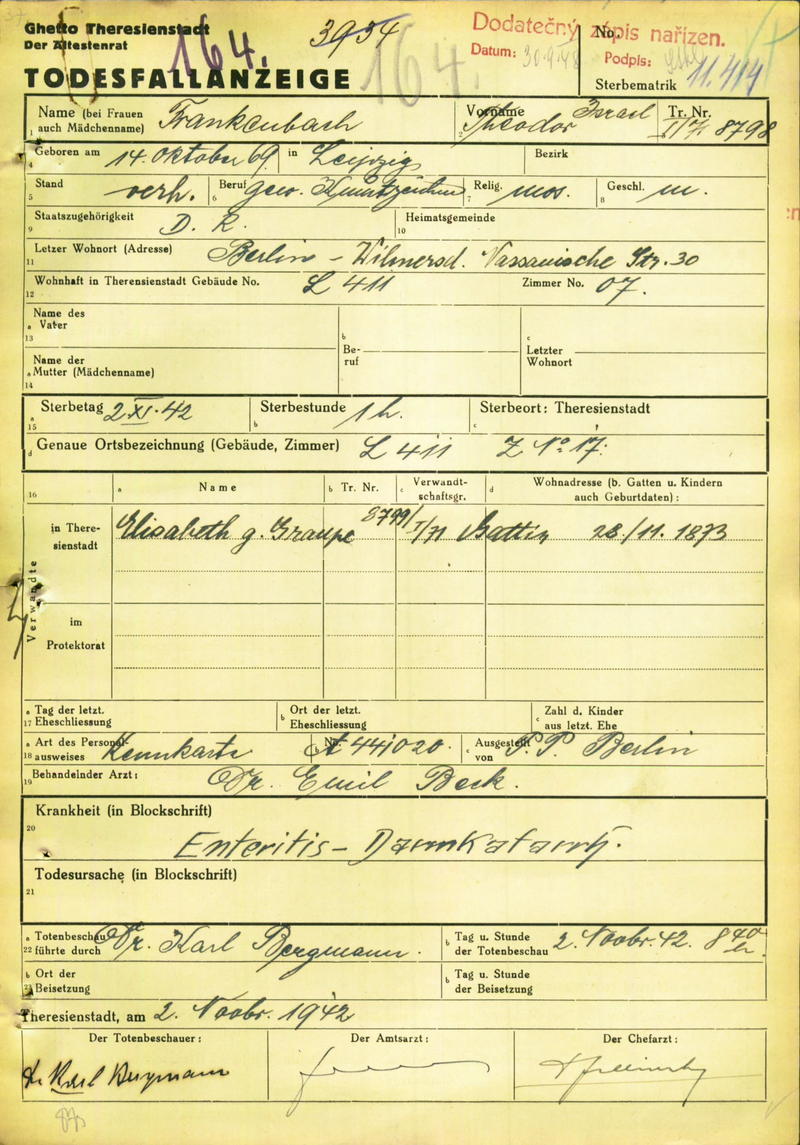 Ghetto Theresienstadt
Der Ältestenrat
164.
3954
164.
Dodatečný zápis nařízen.
Datum: 30.9.48 Podpis:
No.
TODESFALLANZEIGE
Sterbematrik 11.414
Name (bei Frauen auch Mädchenname) Frankenbach
1
Vorname Theodor Israel
2
Tr. Nr. I/71 8798
Geboren am 14. Oktober 69. in Leipzig
4
Bezirk
Stand verh.
5
Beruf gew.
6
Relig. mos.
7
Geschl. m.
8
Staatszugehörigkeit D. R.
9
Heimatsgemeinde
10
Letzer Wohnort (Adresse) Berlin - Wilmersd. Nassauische Str. 30
11
Wohnhaft in Therensienstadt Gebäude No. L 411 Zimmer No. 07.
12
Name des
a Vater
13
b
Be-
ruf
c
Letzter
Wohnort
Name der
a Mutter (Mädchenname)
14
a Sterbetag 2 XI. 42
15
b Sterbestunde 1 h.
c Sterbeort: Theresienstadt
d Genaue Ortsbezeichnung (Gebäude, Zimmer) L 411 Z No 17.
16
a Name
b Tr. Nr.
c Verwandt-
schaftsgr.
d Wohnadresse (b. Gatten u. Kindern
auch Geburtdaten):
Verwandte
in There-
sienstadt
Elisabeth g. Graupe 8799/I/71 Gattin 28/11. 1873
im
Protektorat
a Tag der letzt.
17 Eheschliessung
b Ort der letzt.
Eheschliessung
c Zahl d. Kinder
aus letzt. Ehe
a Art des Personal-
18 ausweises Kennkarte
b Nr. A 441020.
c Ausgestellt
von P. P. Berlin
19 Behandelnder Arzt: Dr. Emil Beck.
Krankheit (in Blockschrift)
20
Enteritis - Darmkatarrh.
Todesursache (in Blockschrift)
21
a Totenbeschau
22 führte durch Dr. Karl Bergmann.
b Tag u. Stunde
der Totenbeschau 2. Novbr. 42. 8 40 h.
b Ort der
23 Beisetzung
b Tag u. Stunde
der Beisetzung
Theresienstadt, am 2. Novbr. 1942
Der Totenbeschauer:
Der Amtsarzt:
Der Chefarzt:
Dr Karl Bergmann